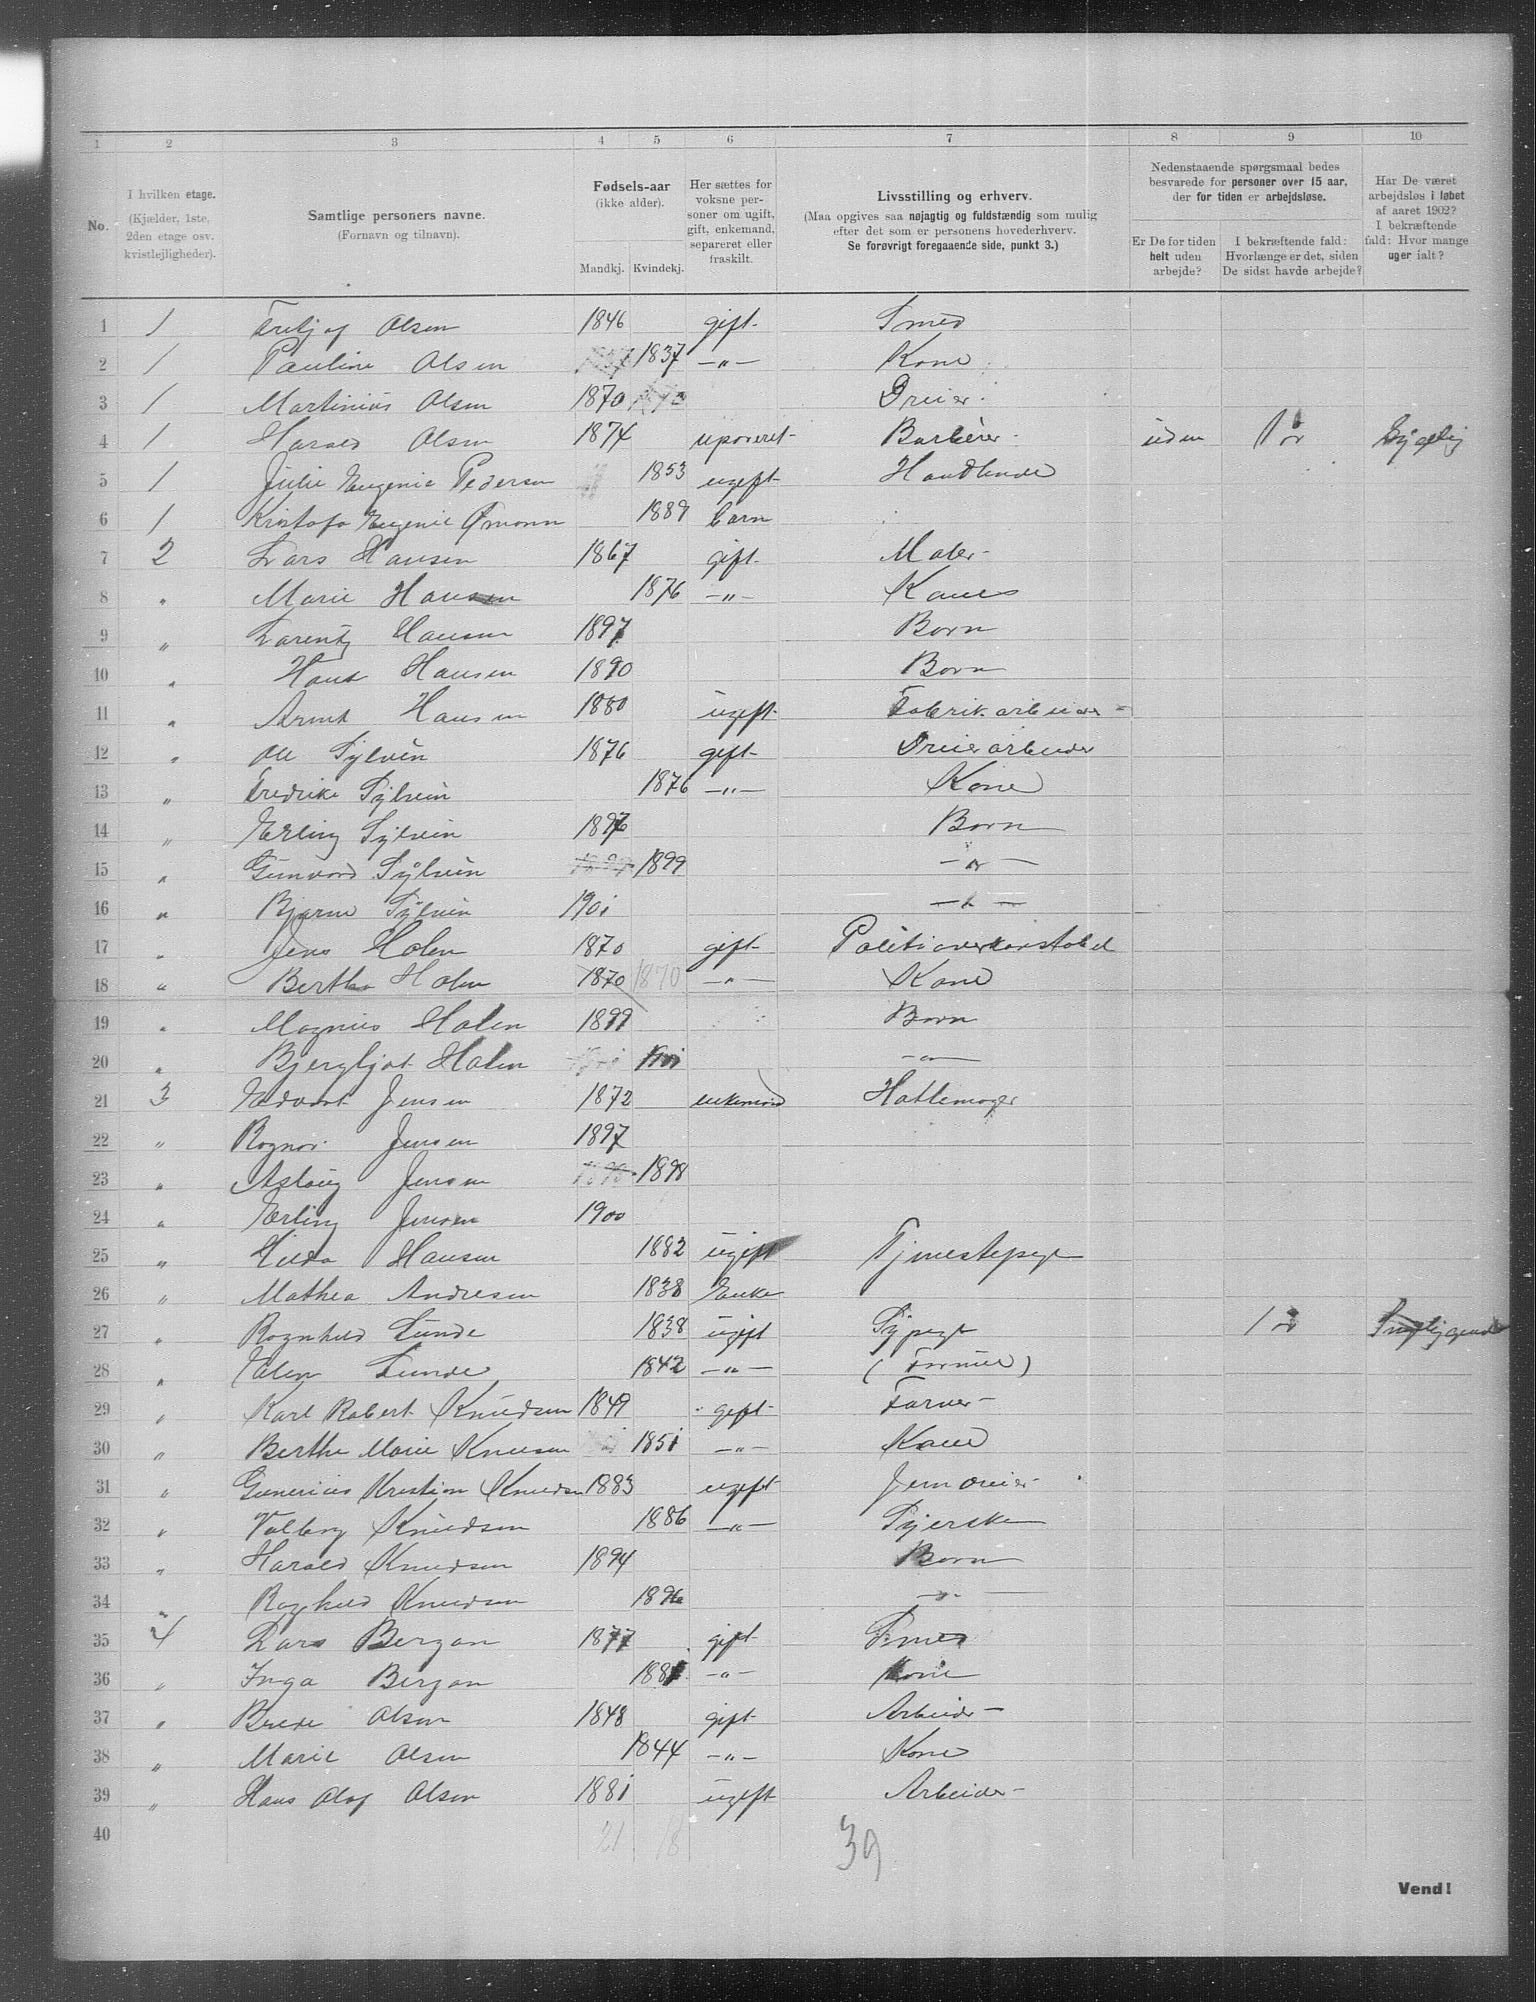 1 2 3 4 5 6 7 8 9 10
No.
I hvilken etage.
(Kjælder, 1ste,
2den etage osv.
kvistlejligheder).
Samtlige personers navne.
(Fornavn og tilnavn).
Fødsels-aar
(ikke alder).
Mandkj. Kvindekj.
Her sættes for
voksne per-
soner om ugift,
gift, enkemand,
separeret eller
fraskilt.
Livsstilling og erhverv.
(Maa opgives saa nøjagtig og fuldstændig som mulig
efter det som er personens hovederhverv.
Se forøvrigt foregaaende side, punkt 3.)
Nedenstaaende spørgsmaal bedes
besvarede for personer over 15 aar,
der for tiden er arbejdsløse.
Er De for tiden
helt uden
arbejde?
I bekræftende fald:
Hvorlænge er det, siden
De sidst havde arbejde?
Har De været
arbejdsløs i løbet
af aaret 1902?
I bekræftende
fald: Hvor mange
uger ialt?
1 1 Olsen 1846 gift Smed
2 1 Pauline Olsen 1837 -"- Kone
3 1 Martinius Olsen 1870 Dreier
4 1 Harald Olsen 1874 Barberer uden 1 år
5 1 Julie Eugenie Pedersen 1853 ugeft Handlende
6 1 Eugenie 1889 barn
7 2 Lars Hansen 1867 gift Maler
8 " Marie Hansen 1876 -"- Kone
9 " Larentz Hansen 1897 Born
10 " Hans Hansen 1890 Born
11 " Hansen 1880 ugeft Fabrikarbeider
12 " Ole Sylvin 1876 gift Dreierarbeider
13 " Fredrike Sylvin 1876 -"- Kone
14 " Erling Sylvin 1897 Born
15 " Gunvord Sylvin 1899 -"-
16 " Bjarne Sylvin 1901 -"-
17 " Jens Holen 1870 gift Politioverkonstabel
18 " Berthe Holen 1870 1870 -"- Kone
19 " Magnus Holen 1899 Born
20 " Bjergljot Holen 1901 -"-
21 3 Edvart Jensen 1872 enkemand Hattemager
22 " Ragnar Jensen 1897
23 " Aslaug Jensen 1898
24 " Erling Jensen 1900
25 " Hilda Hansen 1882 ugift Tjenestepige
26 " Mathea Andresen 1838 Enke
27 " Ragnhild Lunde 1838 ugift Sypige 1 år
28 " Elen Lunde 1842 -"- (Formue)
29 " Karl Robert Knudsen 1849 gift Farver
30 " Berthe Marie Knusen 1851 -"- Kone
31 " Gunerius Kristian Knudsen 1883 ugeft Jerndreier
32 " Valborg Knudsen 1886 -"- Syerske
33 " Harald Knudsen 1894 Born
34 " Raghild Knudsen 1896 -"-
35 4 Lars Bergan 1877 gift Smed
36 " Inga Bergan 1881 -"- Kone
37 " Brede Olsen 1848 gift Arbeider
38 " Marie Olsen 1844 -"- Kone
39 " Hans Olaf Olsen 1881 ugeft Arbeider
40 21 18 39
Vend!